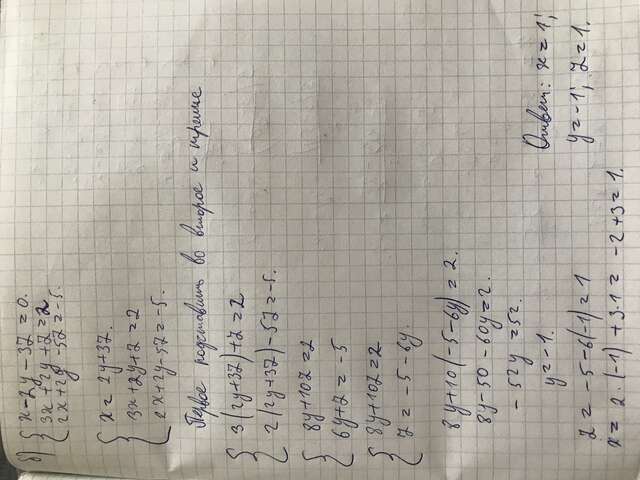 б) { x - 2y - 3z = 0.
3x + 2y + z = 2
2x + 2y - 5z = -5.
{ x = 2y + 3z.
3x + 2y + z = 2
2x + 2y - 5z = -5.
Первое подставить во второе и третие
{ 3(2y+3z) + z = 2
2(2y+3z) - 5z = -5.
{ 8y + 10z = 2
6y + z = -5
{ 8y + 10z = 2
z = -5 - 6y.
8y + 10(-5-6y) = 2.
8y - 50 - 60y = 2.
- 52y = 52.
y = -1.
z = -5 - 6(-1) = 1
x = 2·(-1) + 3·1 = -2+3 = 1.
Ответ: x = 1;
y = -1; z = 1.